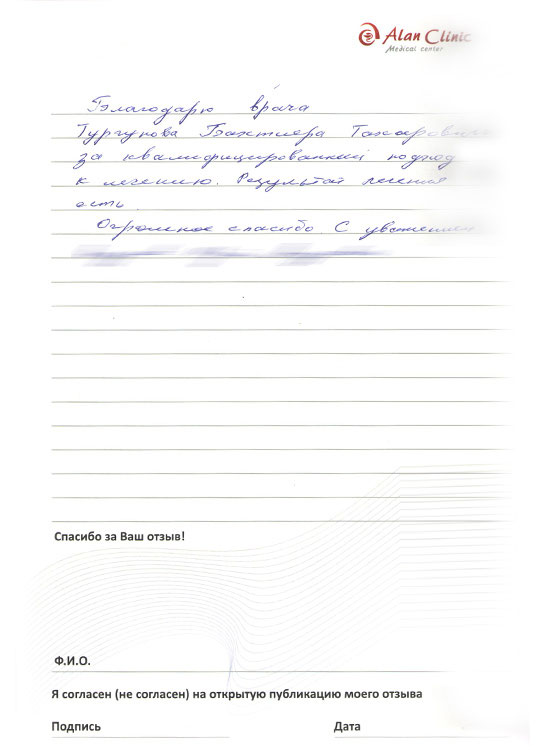 Alan Clinic
Medical center
Благодарю врача
Тургунова Бахтиера
за квалифицированный подход
к лечению. Результат лечения
есть
Огромное спасибо С уважением
Спасибо за Ваш отзыв!
Ф.И.О.
Я согласен (не согласен) на открытую публикацию моего отзыва
Подпись Дата